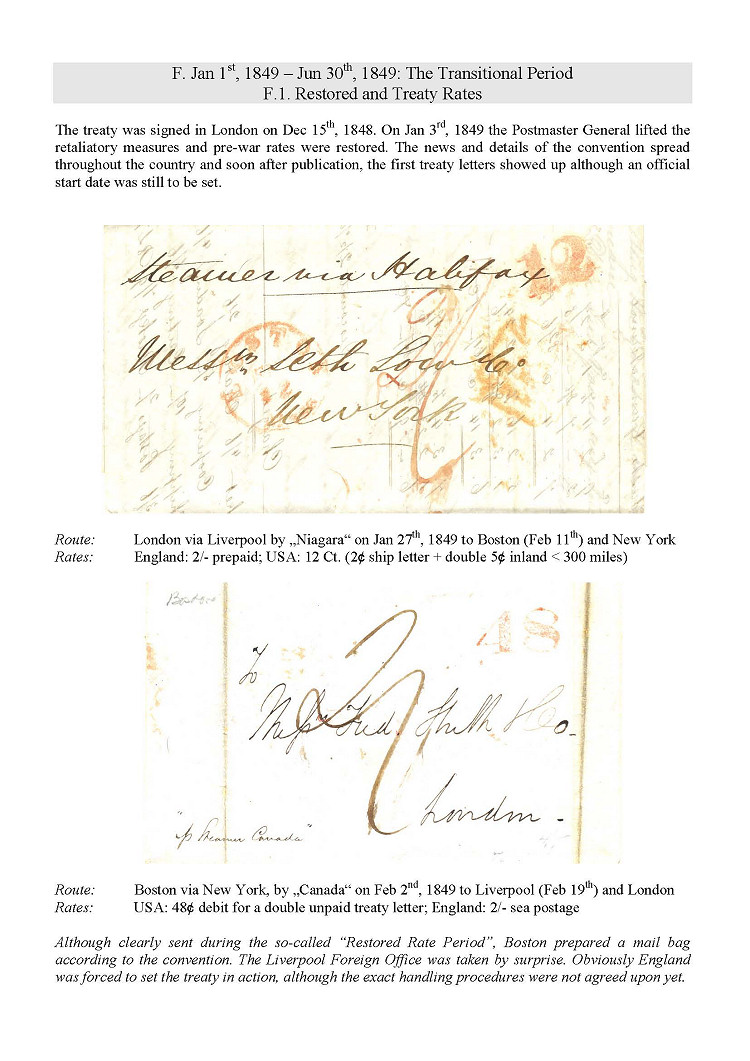 F. Jan 1st, 1849 – Jun 30th, 1849: The Transitional Period
F.1. Restored and Treaty Rates
The treaty was signed in London on Dec 15th, 1848. On Jan 3rd, 1849 the Postmaster General lifted the
retaliatory measures and pre-war rates were restored. The news and details of the convention spread
throughout the country and soon after publication, the first treaty letters showed up although an official
start date was still to be set.
Steamer via Halifax
12
Messrs Seth Low & Co
New York
Route: London via Liverpool by „Niagara“ on Jan 27th, 1849 to Boston (Feb 11th) and New York
Rates: England: 2/- prepaid; USA: 12 Ct. (2¢ ship letter + double 5¢ inland < 300 miles)
Boston
48
To
Messrs Fred. Huth & Co-
London -
"p Steamer Canada"
Route: Boston via New York, by „Canada“ on Feb 2nd, 1849 to Liverpool (Feb 19th) and London
Rates: USA: 48¢ debit for a double unpaid treaty letter; England: 2/- sea postage
Although clearly sent during the so-called “Restored Rate Period”, Boston prepared a mail bag
according to the convention. The Liverpool Foreign Office was taken by surprise. Obviously England
was forced to set the treaty in action, although the exact handling procedures were not agreed upon yet.